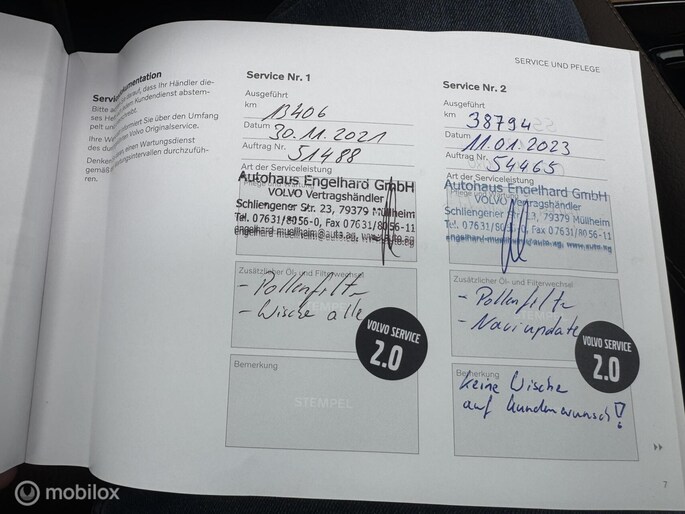 SERVICE UND PFLEGE
Servicedokumentation
Bitte
darauf, dass Ihr Händler die-
Kundendienst abstem-
informiert Sie über den Umfang
Volvo Originalservice.
Ihre
einen Wartungsdienst
Wartungsintervallen durchzufüh-
Denken
gemäß
ren.
Service Nr. 1
Ausgeführt
km 13406
Datum 30.11.2021
Auftrag Nr. 51488
Art der Serviceleistung
Autohaus Engelhard GmbH
VOLVO Vertragshändler
Schliengener Str. 23, 79379 Müllheim
Tel. 07631/8056-0, Fax 07631/8056-11
engelhard-muellheim@auta.ag, www.auto.ag
Zusätzlicher Öl- und Filterwechsel
- Pollenfilter
- Wische alle
VOLVO SERVICE
2.0
Bemerkung
STEMPEL
Service Nr. 2
Ausgeführt
km 38794
Datum 11.01.2023
Auftrag Nr. 54465
Art der Serviceleistung
Autohaus Engelhard GmbH
VOLVO Vertragshändler
Schliengener Str. 23, 79379 Müllheim
Tel. 07631/8056-0, Fax 07631/8056-11
Zusätzlicher Öl- und Filterwechsel
- Pollenfilter
- Naviupdate
VOLVO SERVICE
2.0
Bemerkung
Keine Wische
auf Kundenwunsch!
7
mobilox